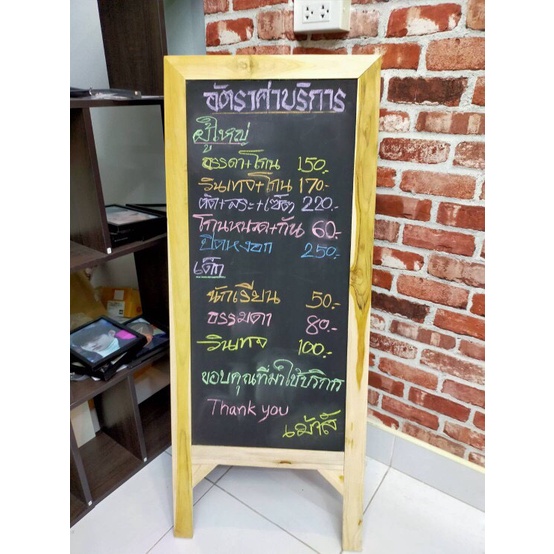 อัตราค่าบริการ
ผู้ใหญ่
ธรรดา+โกน 150.-
วินเทจ+โกน 170.-
ตัด+สระ+เซ็ต 220.-
โกนหนวด+กัน 60.-
ปิดหงอก 250.-
เด็ก
นักเรียน 50.-
ธรรมดา 80.-
วินเทจ 100.-
ขอบคุณที่มาใช้บริการ
Thank you